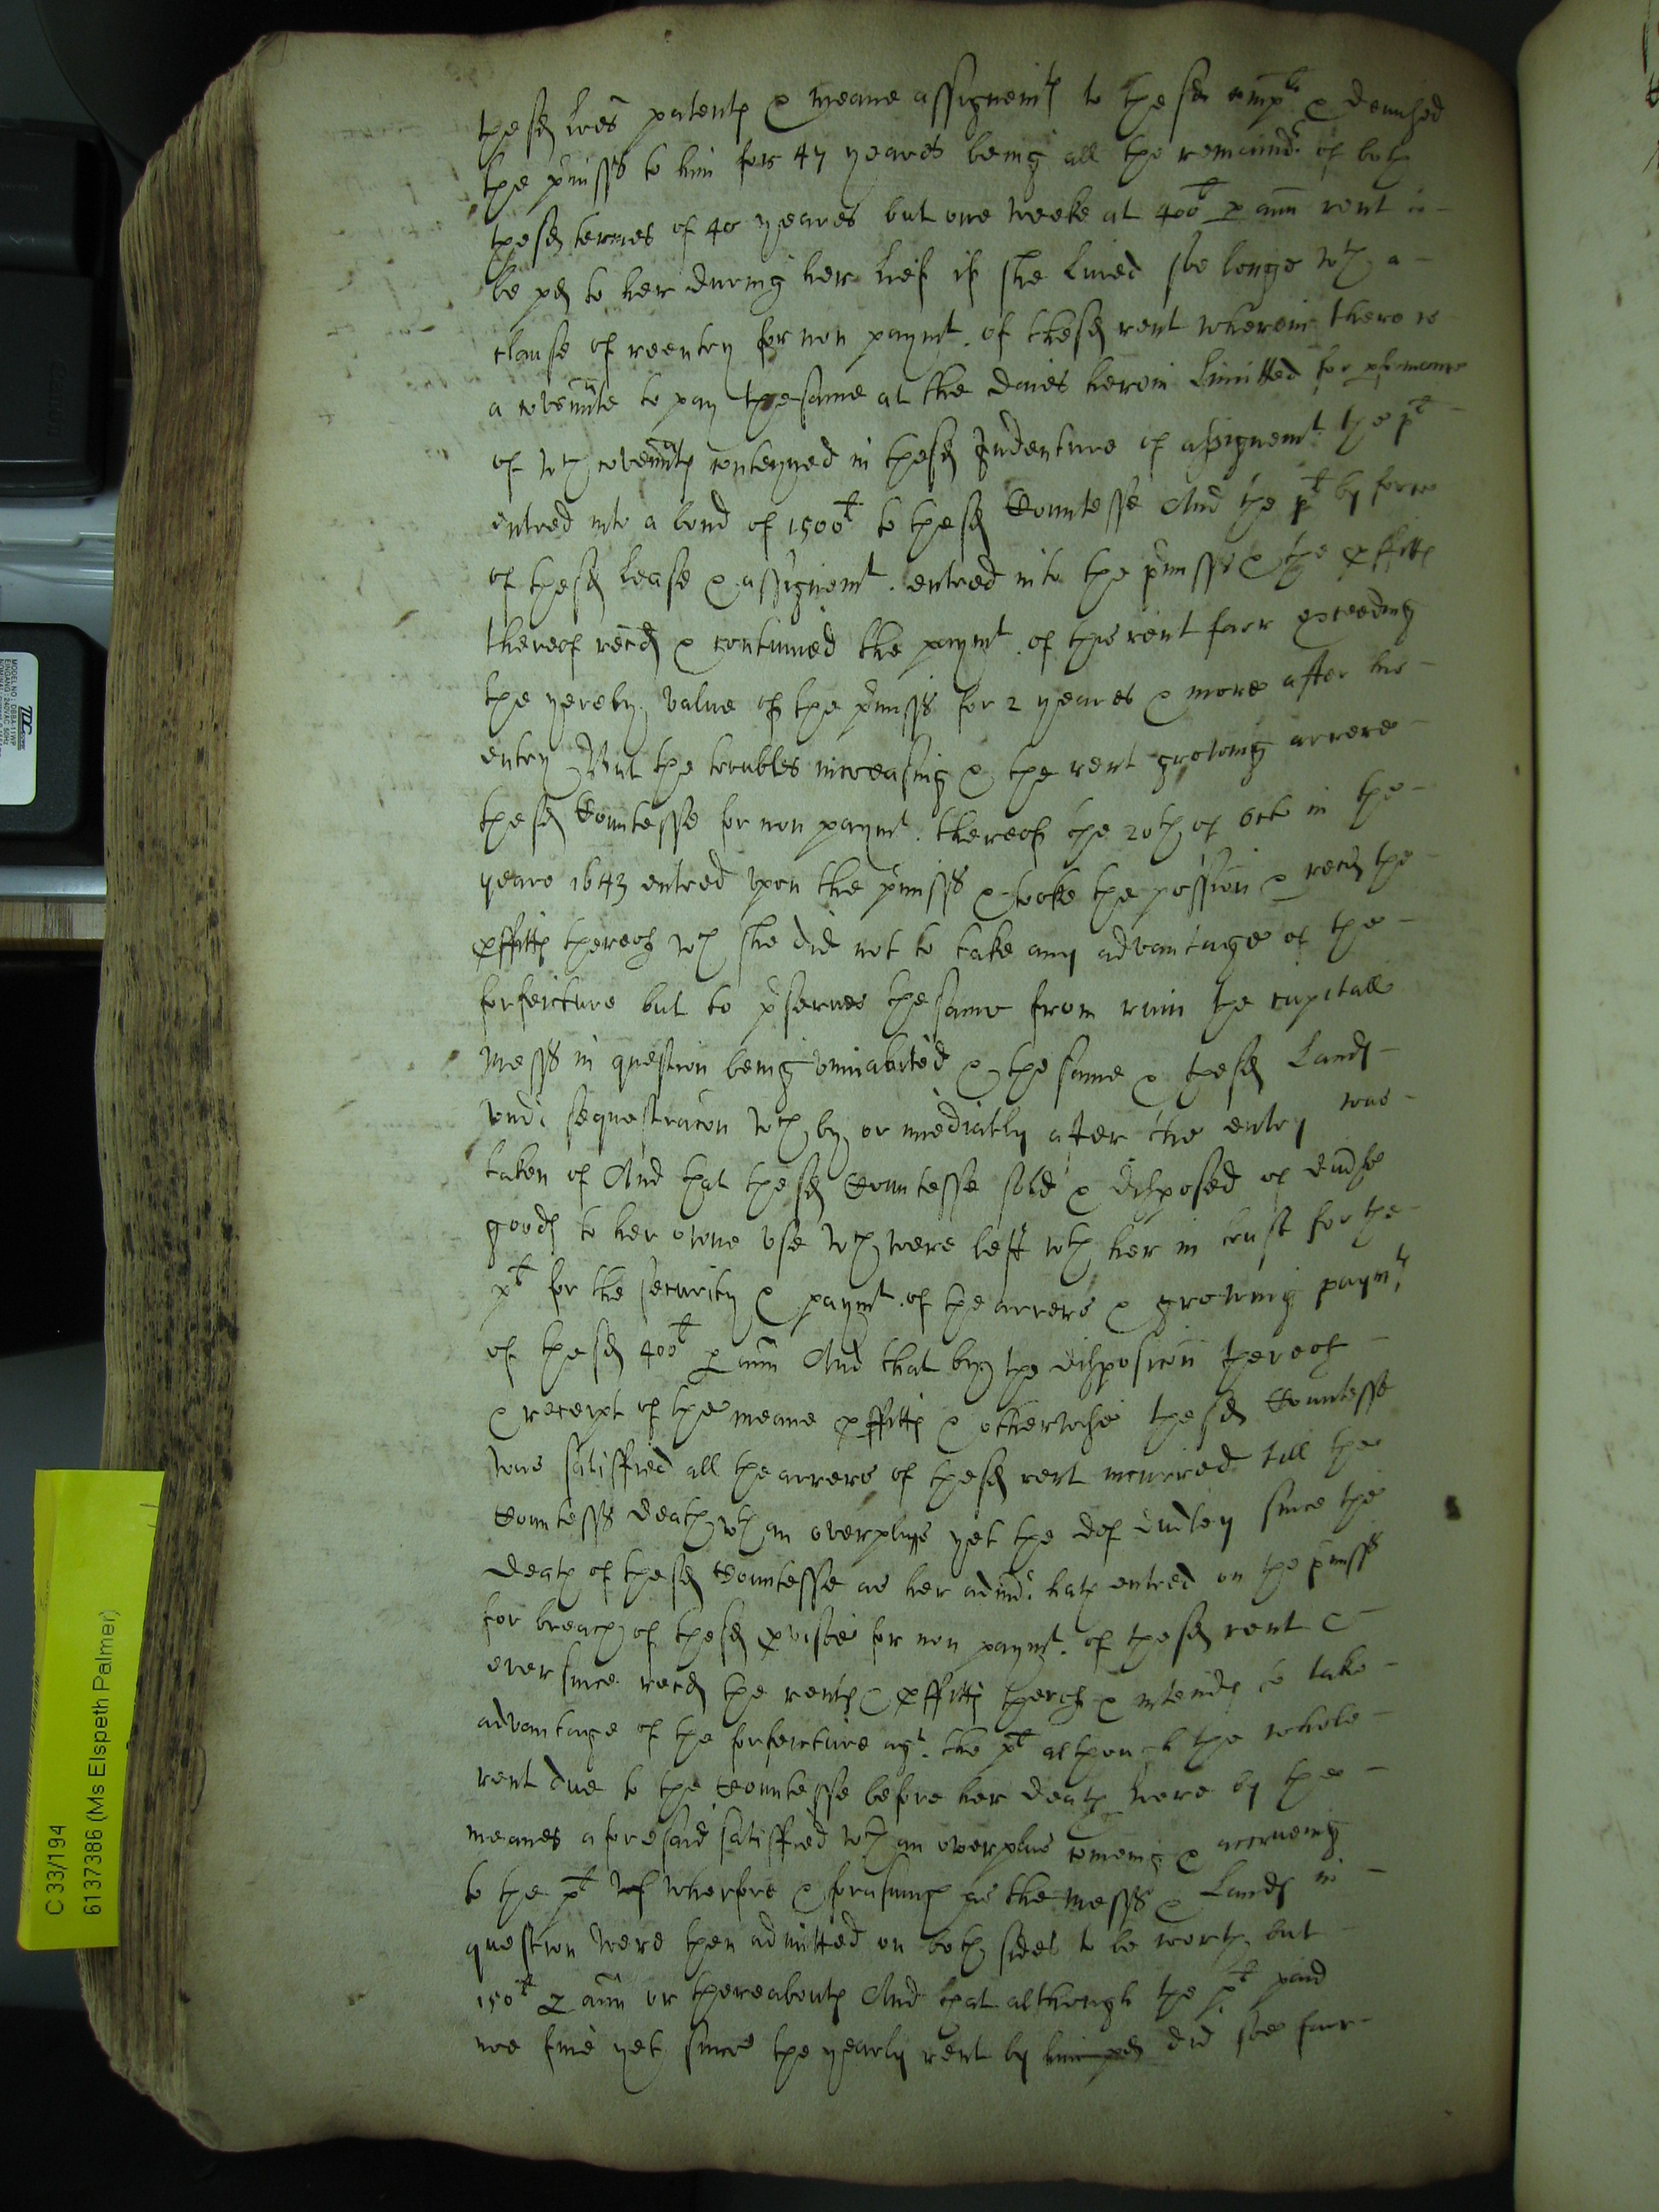 thesd Lres patents & meane assignemts to the sd compt & demised
the pmisss to him for 47 yeares being all the remaindr of both
thesd termes of 40 yeares but one weeke at 400l p ann rent to
be pd to her during her lief if she lived soe longe wth a
clause of reentry for non paymt. of thesd rent wherein there is
a covennte to pay the same at the daies herein limitted for pformance
of wch covennts conteyned in thesd Indenture of assignemt the plt
entred into a bond of 1500l to thesd Countesse And the plt by force
of thesd Lease & assignemt. entred into the pmisss & the pffitts
thereof recd & contiued the paymt. of the rent farr exceeding
the yerely value of the pmisss for 2 yeares & more after his
entry But the troubles increasing & the rent growing arrere
thesd Countesse for non paymt. thereof the 20th of Octo in the
yeare 1643 entred upon the pmisss & tooke the possion & recd the
pffitts thereof wch she did not to take any advantage of the
forfeicture but to pserve the same from ruin the capitall
Messs in question being uninabited & the same & thesd Lands
undr sequestracon wch by or imediatly after the entry was
taken of And that thesd Countesse sold & disposed of divse
goods to her owne use wch were left wth her in trust for the
plt for the security & paymt. of the arrere & growing paymts
of thesd 400l p ann And that by the disposicon thereof
& receipt of the meane pffitts & otherwise thesd Countesse
was satisffied all the arrere of thesd rent incurred till the
Countesss death wth an overpluss yet the def Dudley since the
death of thesd Countesse as her admr. hath entred on the pmisss
for breach of thesd pviso for non paymt. of thesd rent &
ever since recd the rents & pffitts thereof & intends to take
advantage of the forfeicture agt. the plt although the whole
rent due to the Countesse before her death were by the
meanes aforesaid satisffied wth an overplus comeing & accrueing
to the plt wherfore & forasmuch as the Messs & Lands in
question were then admitted on both sides to be worth but
150l p ann or thereabouts And that although the plt paid
noe fine yet since the yearly rent by him pd did soe farr